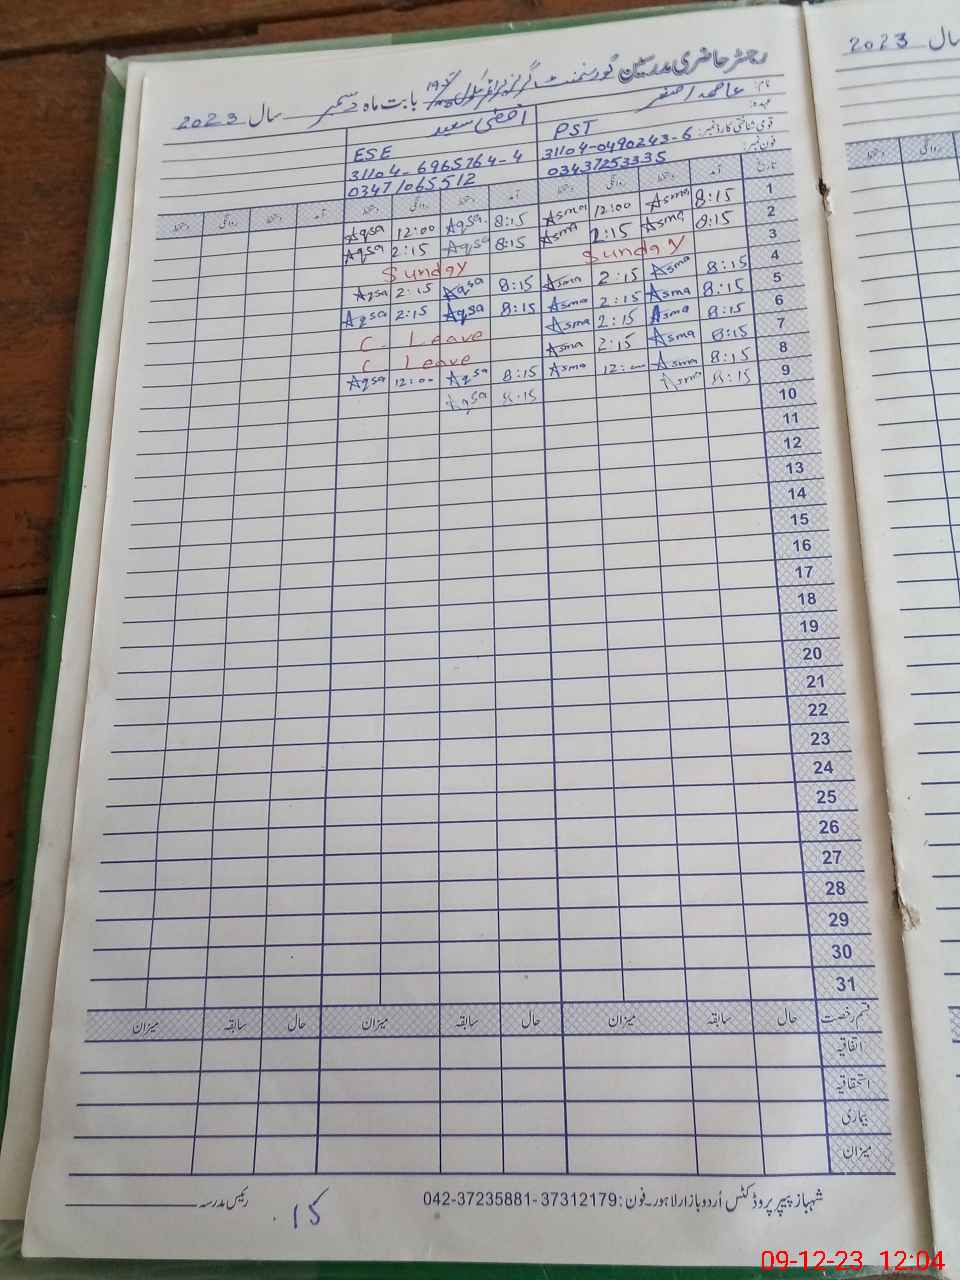 رجسٹر حاضری مدرسین گورنمنٹ گرلز پرائمری سکول بابت ماہ دسمبر سال 2023
سال 2023
نام:
عہدہ: PST ESE
قومی شناختی کارڈ نمبر: 31104-0490243-6 31104-6965764-4
فون نمبر: 03437253335 03471065512
تاریخ آمد دستخط روانگی دستخط آمد دستخط روانگی دستخط آمد دستخط روانگی دستخط
روانگی دستخط
1 8:15 Asma 12:00 Asma 8:15 Aqsa 12:00 Aqsa
2 8:15 Asma 2:15 Asma 8:15 Aqsa 2:15 Aqsa
3 Sunday Sunday
4 8:15 Asma 2:15 Asma 8:15 Aqsa 2:15 Aqsa
5 8:15 Asma 2:15 Asma 8:15 Aqsa 2:15 Aqsa
6 8:15 Asma 2:15 Asma C. Leave
7 8:15 Asma 2:15 Asma C Leave
8 8:15 Asma 12:00 Asma 8:15 Aqsa 12:00 Aqsa
9 8:15 Asma 8:15 Aqsa
10
11
12
13
14
15
16
17
18
19
20
21
22
23
24
25
26
27
28
29
30
31
قسم رخصت حال سابقہ میزان حال سابقہ میزان حال سابقہ میزان
اتفاقیہ
استحقاقیہ
بیماری
میزان
شہباز پیپر پروڈکٹس اُردو بازار لاہور۔ فون: 37312179-37235881-042
رئیس مدرسہ
15
09-12-23 12:04